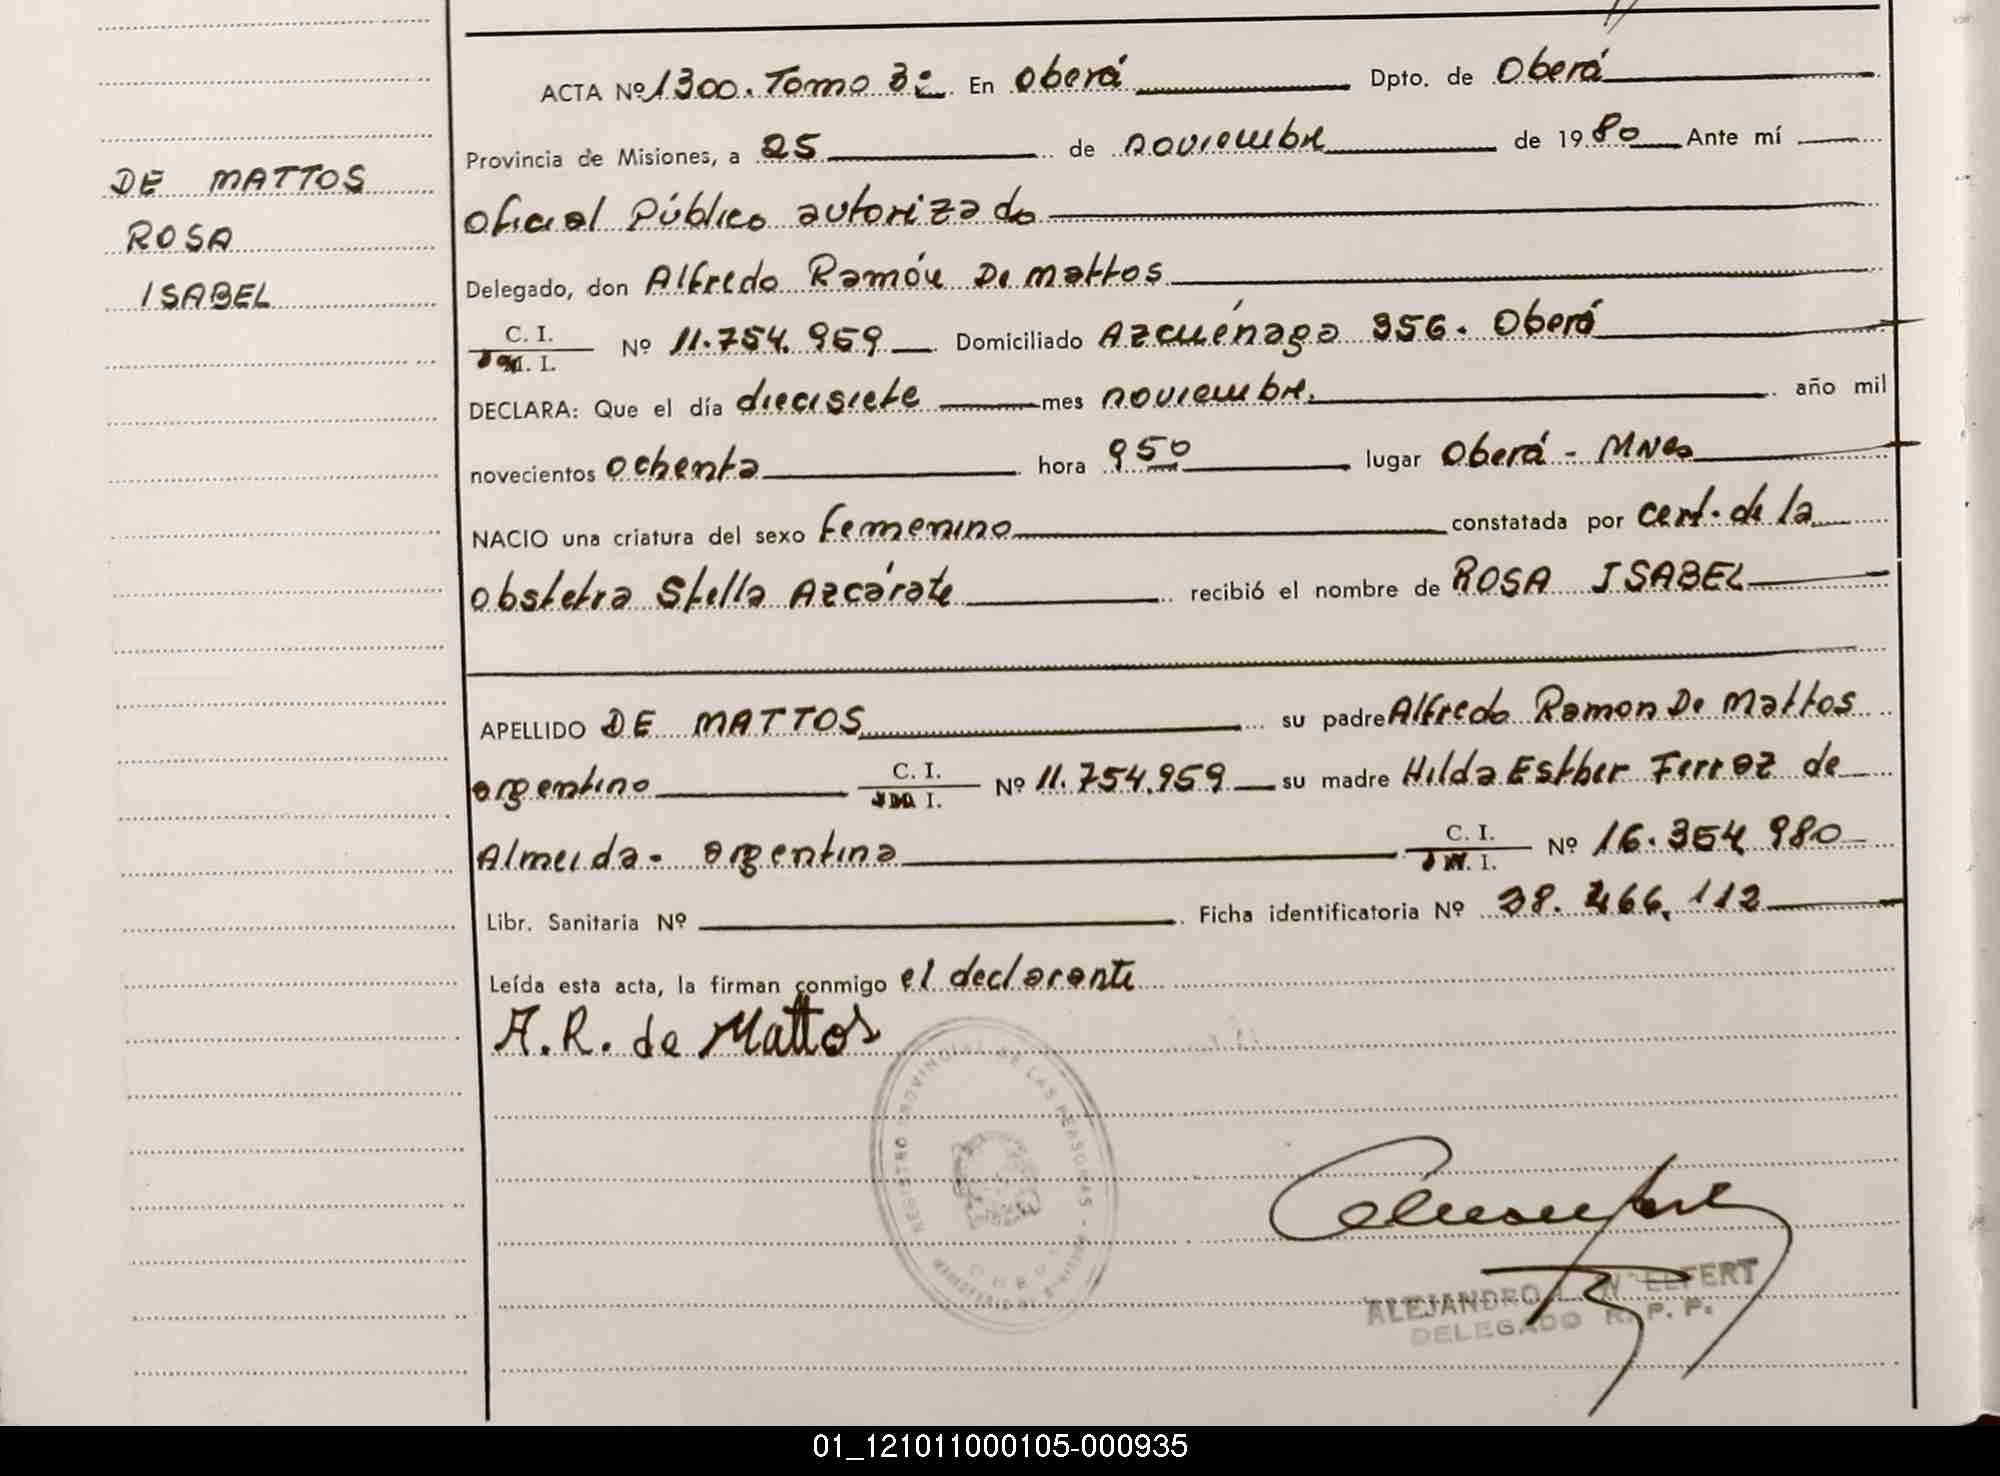 ACTA Nº 1300. Tomo 3º En Oberá Dpto. de Oberá
Provincia de Misiones, a 25 de noviembre de 1980 Ante mí
Oficial Público autorizado
Delegado, don Alfredo Ramón De Mattos
C. I.
M. I. Nº 11.754.959 Domiciliado Azcuénaga 356. Oberá
DECLARA: Que el día diecisiete mes noviembre. año mil
novecientos ochenta hora 950 lugar Oberá - MNes
NACIO una criatura del sexo femenino constatada por cert. de la
obstetra Stella Azcárate recibió el nombre de ROSA ISABEL
APELLIDO DE MATTOS su padre Alfredo Ramon De Mattos
argentino C. I. Nº 11.754.959 su madre Hilda Esther Ferraz de
Almeida - argentina C. I. Nº 16.354.980
Libr. Sanitaria Nº Ficha identificatoria Nº 28.466.112
Leída esta acta, la firman conmigo el declarante
A. R. de Mattos
DE MATTOS
ROSA
ISABEL
REGISTRO PROVINCIAL DE LAS PERSONAS
ALEJANDRO WELFERT
DELEGADO R. P. P.
01_121011000105-000935